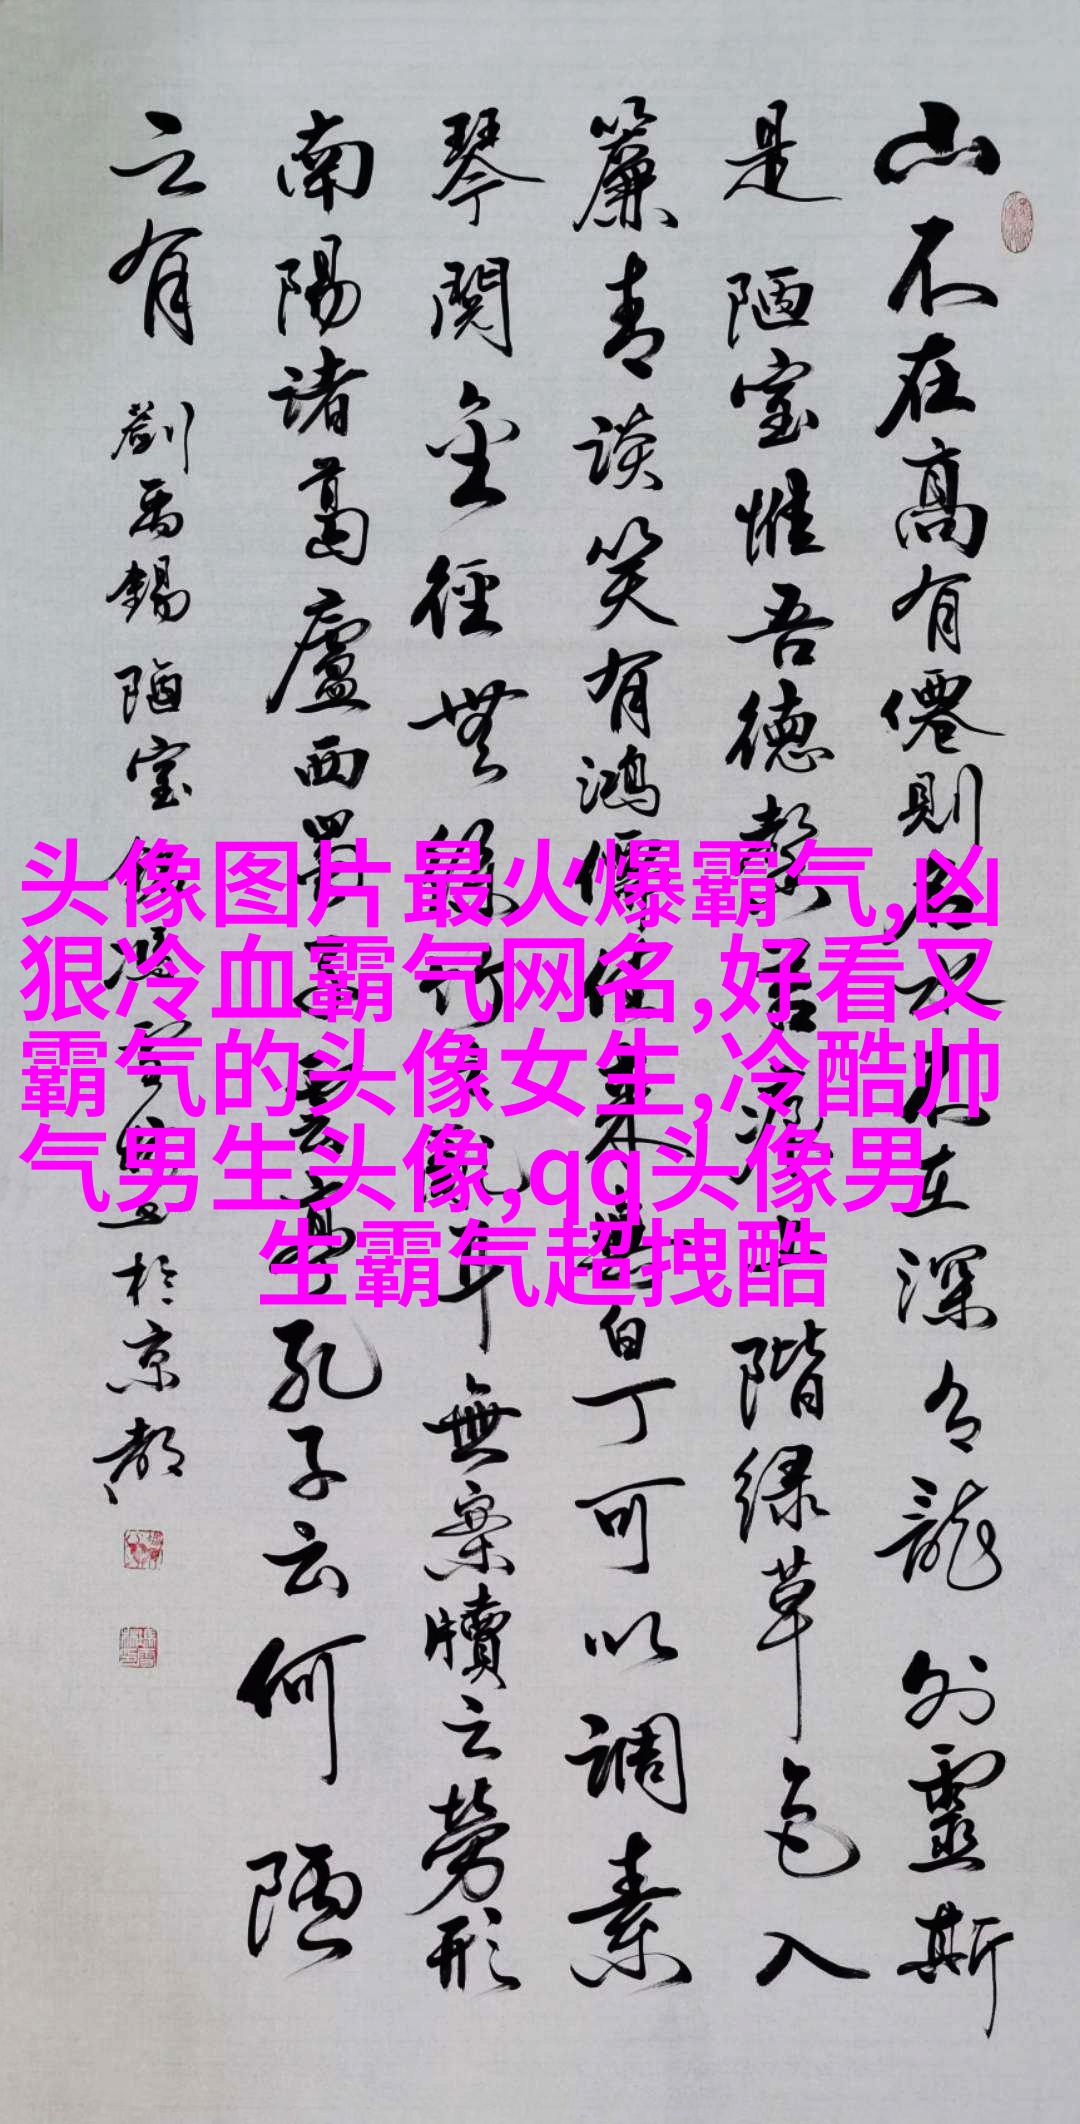 山不在高有僊則名水不在深有龍則靈斯
是陋室惟吾德馨苔痕上階緑草色入
簾青談笑有鴻儒往來無白丁可以調素
琴閲金徑無絲竹之亂耳無案牘之勞形
南陽諸葛廬西蜀子雲亭孔子云何陋
之有 劉禹錫陋室銘 於京都
头像图片最火爆霸气,凶
狠冷血霸气网名,好看又
霸气的头像女生,冷酷帅
气男生头像,qq头像男
生霸气超拽酷